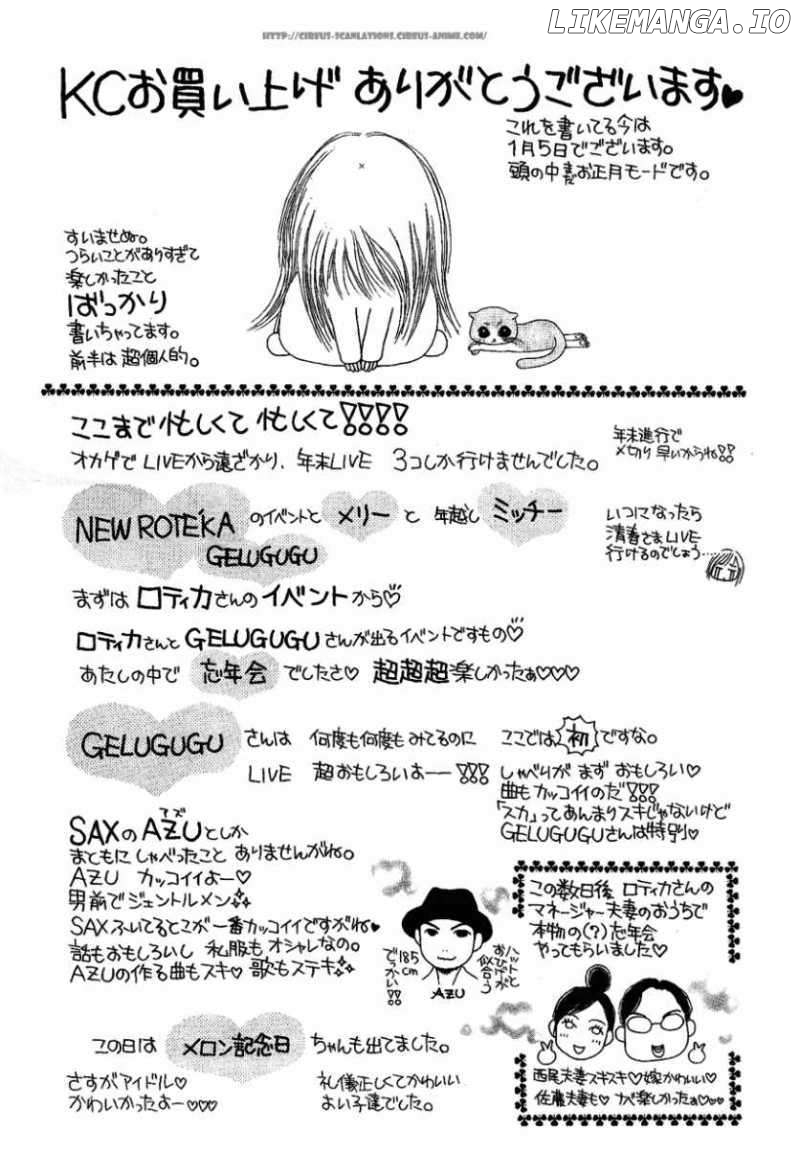 HTTP://CIRSUS-SCANLATIONS.CIRSUS-ANIME.COM/
LIKEMANGA.IO
KCお買い上げ ありがとうございます♥
これを書いてる今は
1月5日でございます。
頭の中まだお正月モードです。
すいませぬ。
つらいことがありすぎて
楽しかったこと
ばっかり
書いちゃってます。
前半は 超個人的。
ここまで忙しくて忙しくて!!!!
オカゲで LIVEから遠ざかり、年末LIVE 3コしか行けませんでした。
年末進行で
〆切り 早いからね!!
NEW ROTE'KA のイベントと メリー と 年越し ミッチー
GELUGUGU
いつになったら
清春さまLIVE
行けるのでしょう……
まずは ロティカさんの イベント から♡
ロティカさんと GELUGUGUさんが出るイベントですもの♡
あたしの中で 忘年会 でしたさ♡ 超超超楽しかったぁ♡♡♡
GELUGUGU さんは 何度も何度も みてるのに ここでは 初 ですな。
LIVE 超おもしろいよーー!!! しゃべりが まず おもしろい♡
曲も カッコイイのだ!!!
「スカ」ってあんまりスキじゃないけど
GELUGUGUさんは特別♡
SAXのAZUとしか
アズ
まともに しゃべったこと ありませんがね。
AZU カッコイイよー♡
男前でジェントルメン
SAXふいてるとこが一番カッコイイですがね♥
話もおもしろいし 私服も オシャレなの。
AZUの作る曲もスキ♡ 歌もステキ
ハットと
おひげが
似合う
185cm
でっかい!!
AZU
この数日後 ロティカさんの
マネージャー夫妻のおうちで
本物の(?)忘年会
やってもらいました♡
西尾夫妻スキスキ♡嫁かわいい♡
佐藤夫妻も♡ ナベ楽しかったぁ♡♡♡
この日は メロン記念日 ちゃんも出てました。
さすがアイドル♡
かわいかったよー♡♡♡
礼儀正しくてかわいい
よい子達でした。